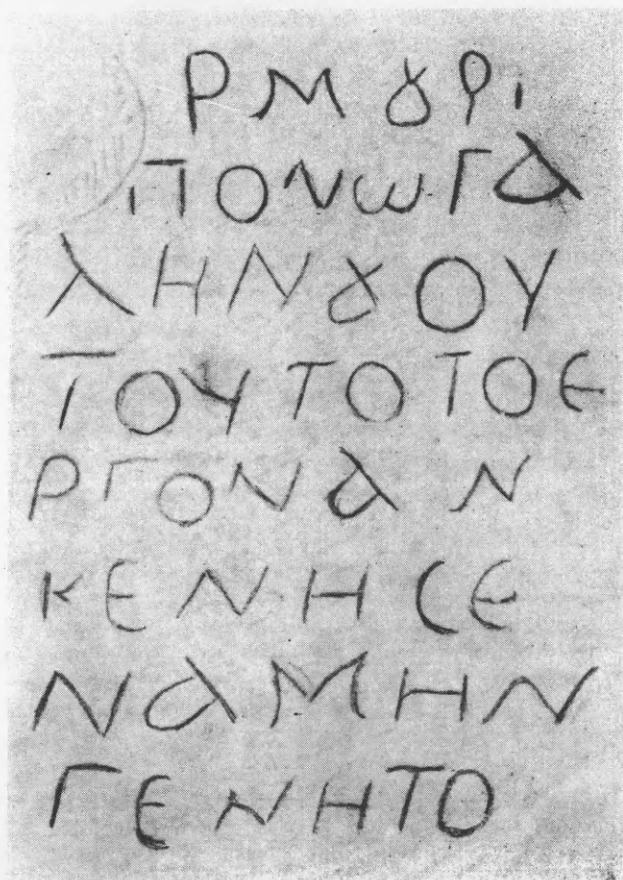 ΡΜȢΡΙ
ΠΟΝωΓΑ
ΛΗΝȢΟΥ
ΤΟΥΤΟΤΟΕ
ΡΓΟΝΑΝ
ΚΕΝΗϹΕ
ΝΑΜΗΝ
ΓΕΝΗΤΟ